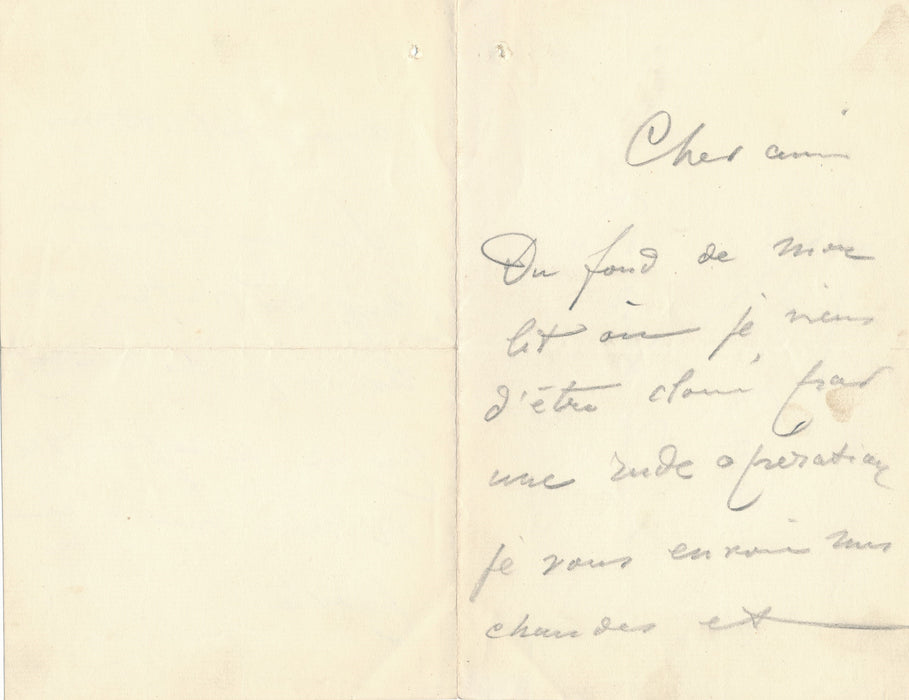 Cher ami
Du fond de mon
lit où je viens
d'être cloué par
une rude opération
je vous envoie mes
chaudes et